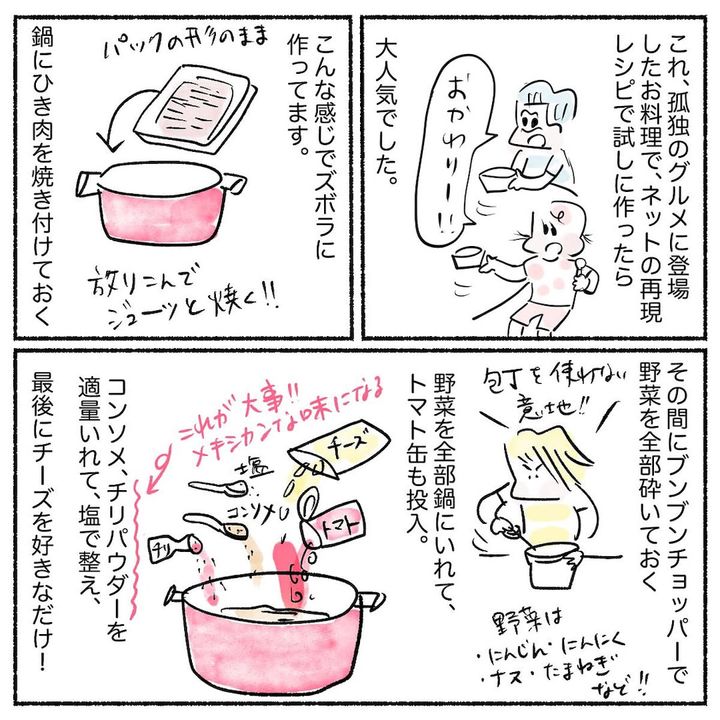 これ、孤独のグルメに登場
したお料理で、ネットの再現
レシピで試しに作ったら
大人気でした。
おかわりー!!
こんな感じでズボラに
作ってます。
パックの形のまま
鍋にひき肉を焼き付けておく
放りこんで
ジューッと焼く!!
その間にブンブンチョッパーで
野菜を全部砕いておく
包丁を使わない
意地!!
野菜は
・にんじん・にんにく
・ナス・たまねぎ
など!!
野菜を全部鍋にいれて、
トマト缶も投入。
チーズ
トマト
塩
コンソメ
チリ
これが大事!!
メキシカンな味になる
コンソメ、チリパウダーを
適量いれて、塩で整え、
最後にチーズを好きなだけ!